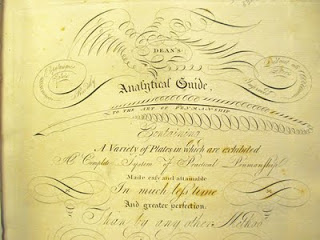 DEAN'S
Analytical Guide,
TO THE ART OF PENMANSHIP
Containing
A Variety of Plates in which are exhibited
A Complete System of Practical Penmanship
Made easy and attainable
In much less time
And greater perfection,
Than by any other Method